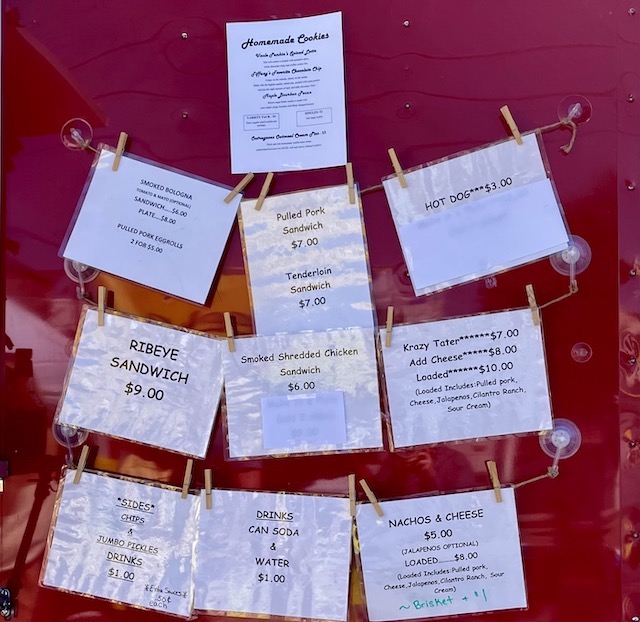 Homemade Cookies
Tiffany's Favorite Chocolate Chip
Maple Bourbon Pecan
Outrageous Oatmeal Cream Pies
SMOKED BOLOGNA
TOMATO & MAYO (OPTIONAL)
SANDWICH....$6.00
PLATE....$8.00
PULLED PORK EGGROLLS
2 FOR $5.00
Pulled Pork
Sandwich
$7.00
Tenderloin
Sandwich
$7.00
HOT DOG***$3.00
RIBEYE
SANDWICH
$9.00
Smoked Shredded Chicken
Sandwich
$6.00
Krazy Tater******$7.00
Add Cheese*****$8.00
Loaded******$10.00
(Loaded Includes:Pulled pork,
Cheese,Jalapenos,Cilantro Ranch,
Sour Cream)
*SIDES*
CHIPS
&
JUMBO PICKLES
DRINKS
$1.00
*Extra Sauces*
50¢
each
DRINKS
CAN SODA
&
WATER
$1.00
NACHOS & CHEESE
$5.00
(JALAPENOS OPTIONAL)
LOADED......$8.00
(Loaded Includes:Pulled pork,
Cheese,Jalapenos,Cilantro Ranch, Sour
Cream)
~ Brisket + $1